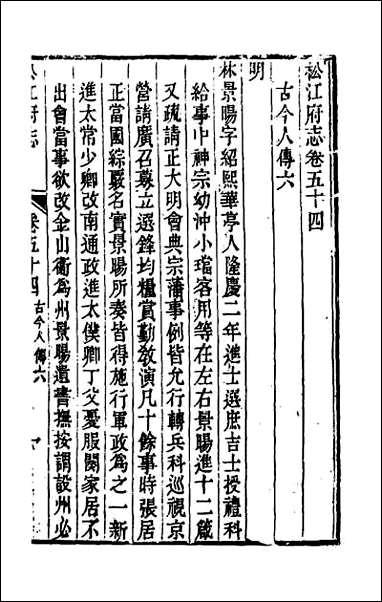 松江府志卷五十四
古今人傳六
明
林景暘字紹熙華亭人隆慶二年進士選庶吉士授禮科
給事中神宗幼沖小璫客用等在左右景暘進十二箴
又疏請正大明會典宗藩事例皆允行轉兵科巡視京
營請廣召募立選鋒均糧賞勤教演凡十餘事時張居
正當國綜覈名實景暘所奏皆得施行軍政為之一新
進太常少卿改南通政進太僕卿丁父憂服闋家居不
出會當事欲改金山衞為州景暘遺書撫按謂設州必
松江府志
卷五十四 古今人傳六